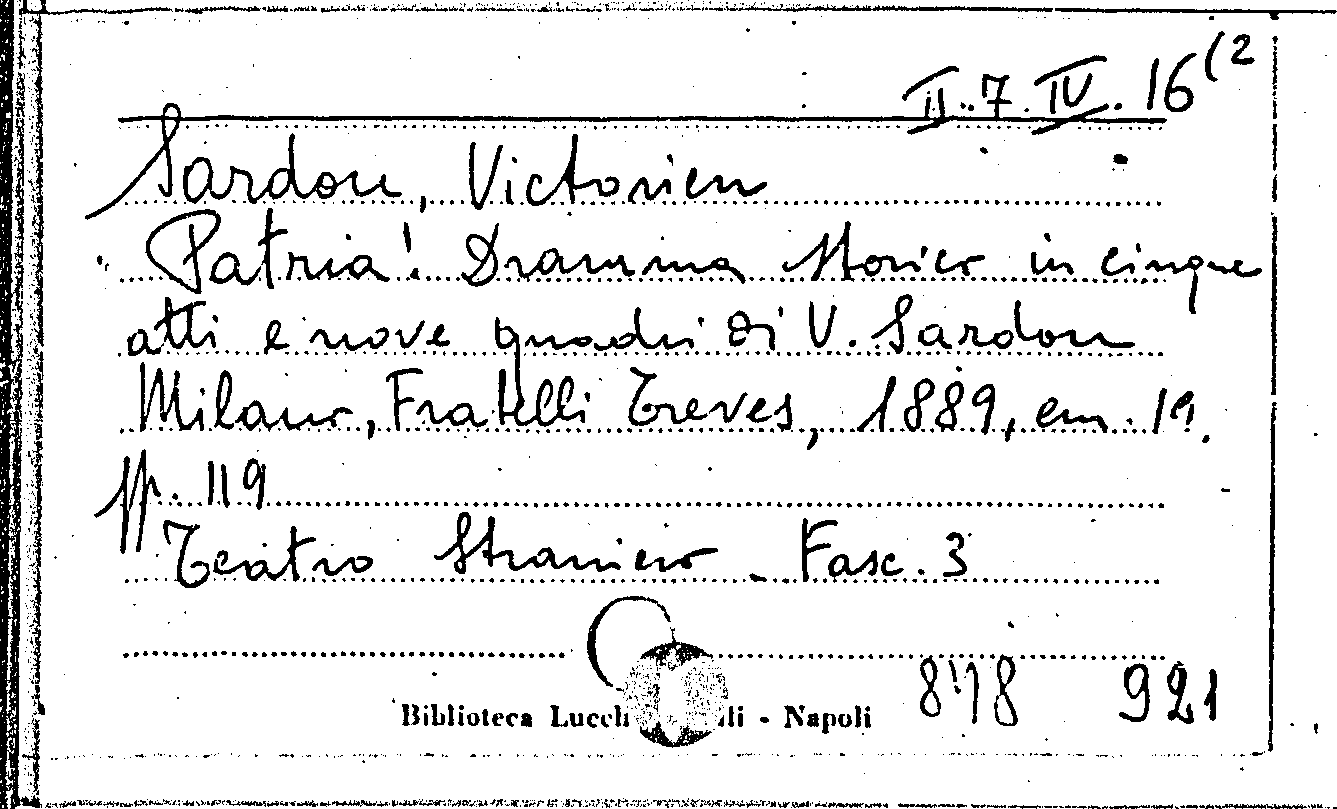 II. 7. IV. 16(2
Sardou, Victorien
Patria! Dramma storico in cinque
atti e nove quadri di V. Sardou
Milano, Fratelli Treves, 1889, cm. 19.
pp. 119
Teatro Straniero - Fasc. 3
Biblioteca - Napoli 921